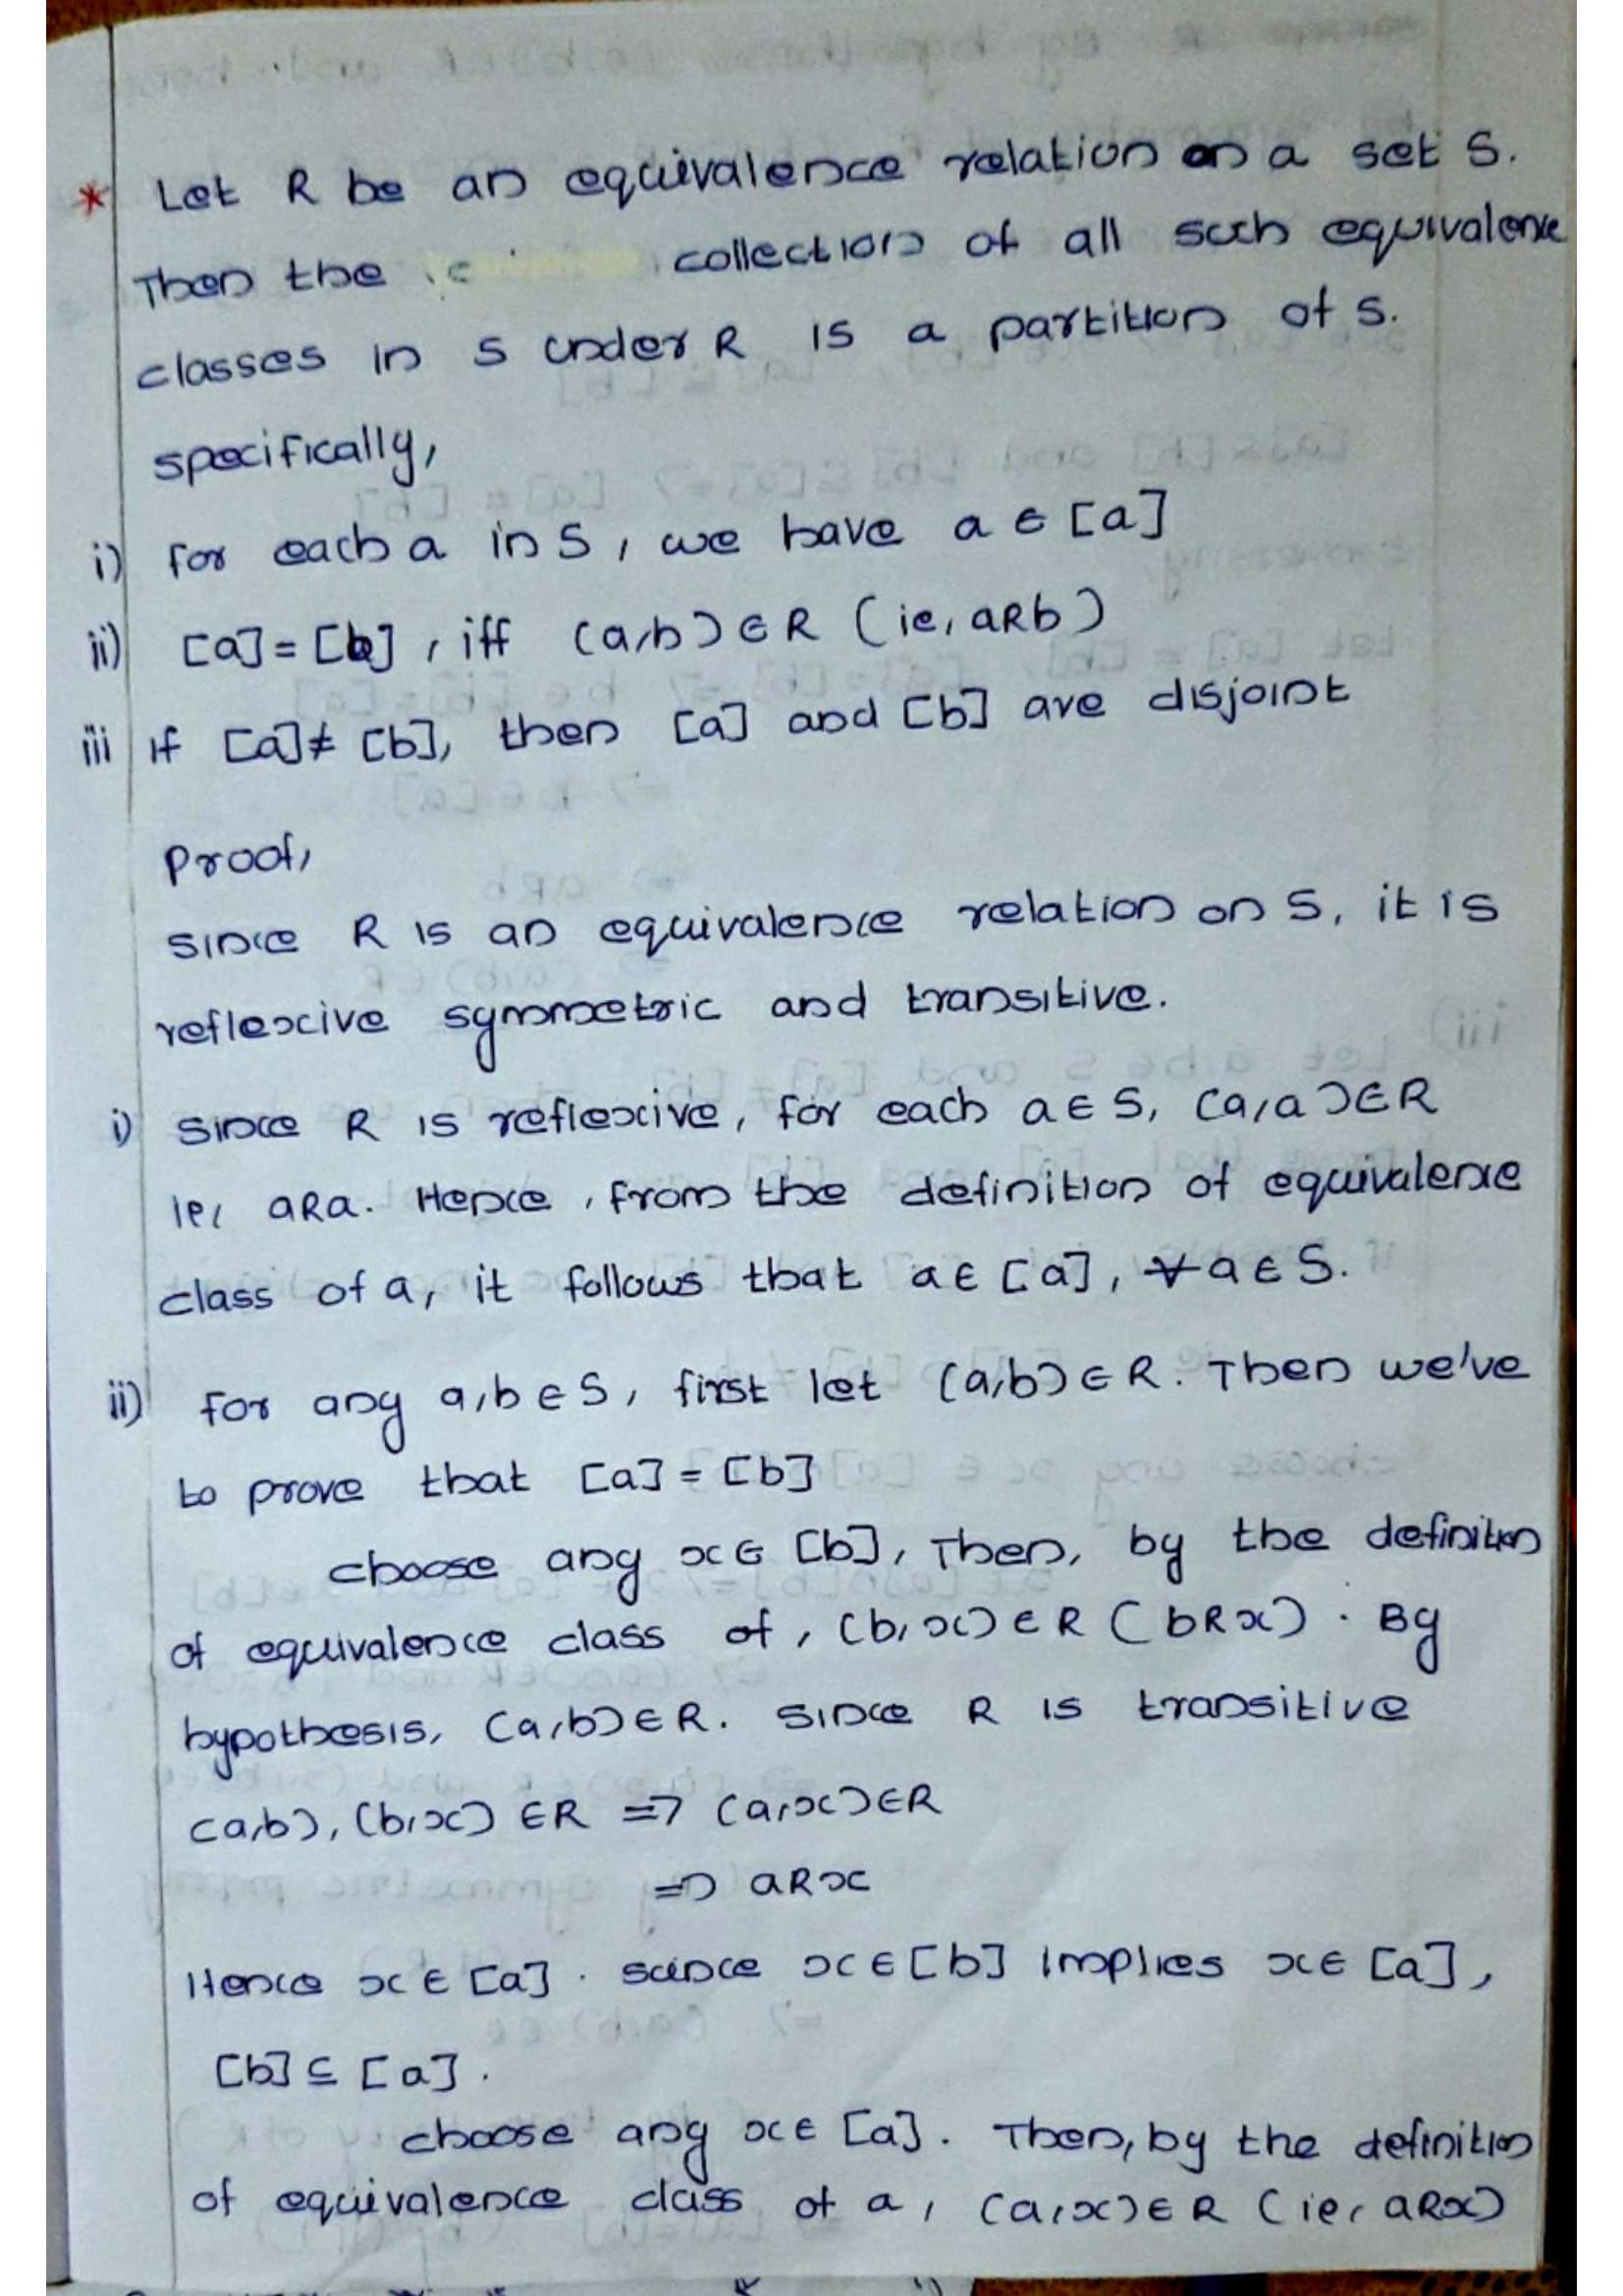 * Let R be an equivalence relation on a set S.
Then the collection of all such equivalence
classes in S under R is a partition of S.
specifically,
i) for each a in S, we have a ∈ [a]
ii) [a]=[b], iff (a,b)∈R (ie, aRb)
iii If [a]≠[b], then [a] and [b] are disjoint
Proof,
since R is an equivalence relation on S, it is
reflexive symmetric and transitive.
i) since R is reflexive, for each a∈S, (a,a)∈R
ie, aRa. Hence, from the definition of equivalence
class of a, it follows that a∈[a], ∀a∈S.
ii) for any a,b∈S, first let (a,b)∈R. Then we've
to prove that [a]=[b]
choose any x∈[b], Then, by the definition
of equivalence class of, (b,x)∈R (bRx). By
hypothesis, (a,b)∈R. since R is transitive
(a,b), (b,x)∈R => (a,x)∈R
=> aRx
Hence x∈[a]. since x∈[b] implies x∈[a],
[b]⊆[a].
choose any x∈[a]. Then, by the definition
of equivalence class of a, (a,x)∈R (ie, aRx)